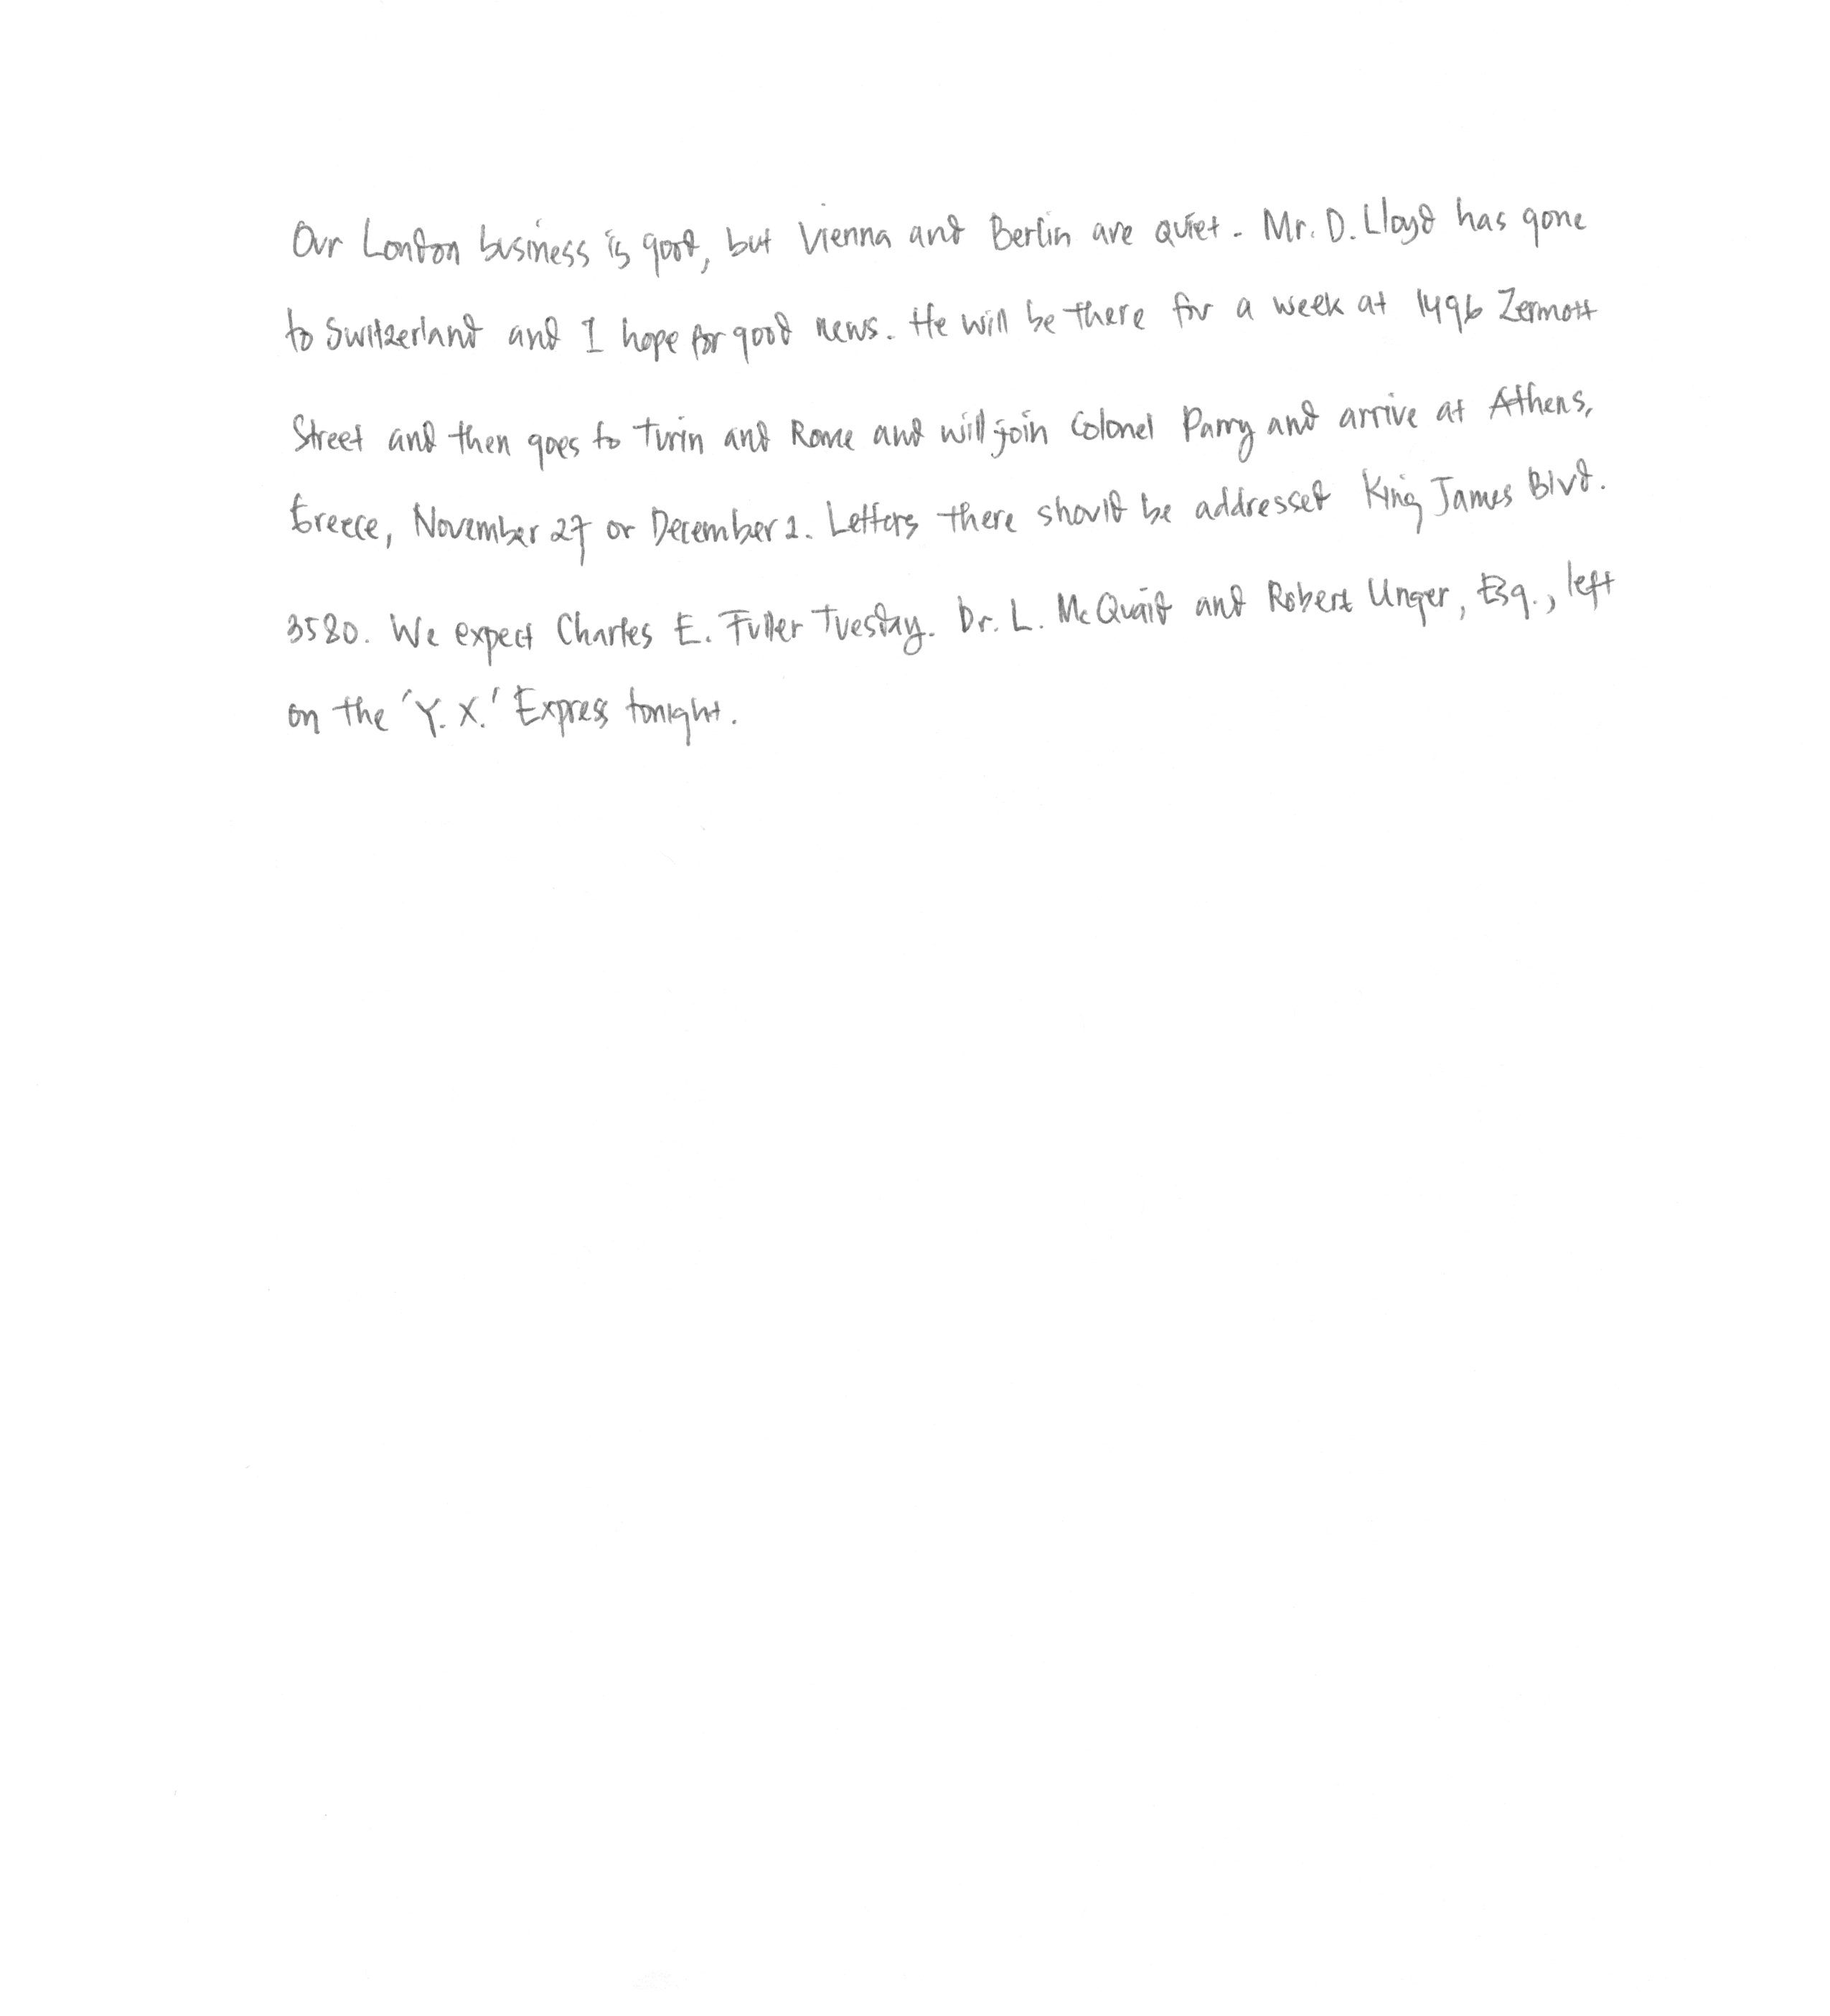 Our London business is good, but Vienna and Berlin are quiet. Mr. D. Lloyd has gone
to Switzerland and I hope for good news. He will be there for a week at 1496 Zermott
Street and then goes to Turin and Rome and will join Colonel Parry and arrive at Athens,
Greece, November 27 or December 2. Letters there should be addressed King James Blvd.
3580. We expect Charles E. Fuller Tuesday. Dr. L. McQuaid and Robert Unger, Esq., left
on the 'Y. X.' Express tonight.